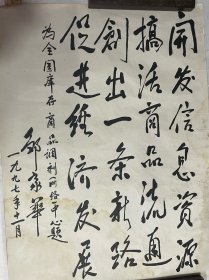 开发信息资源
搞活商品流通
創出一条新路
促进经济发展
为全国库存商品调剂网络中心题
一九九七年十一月